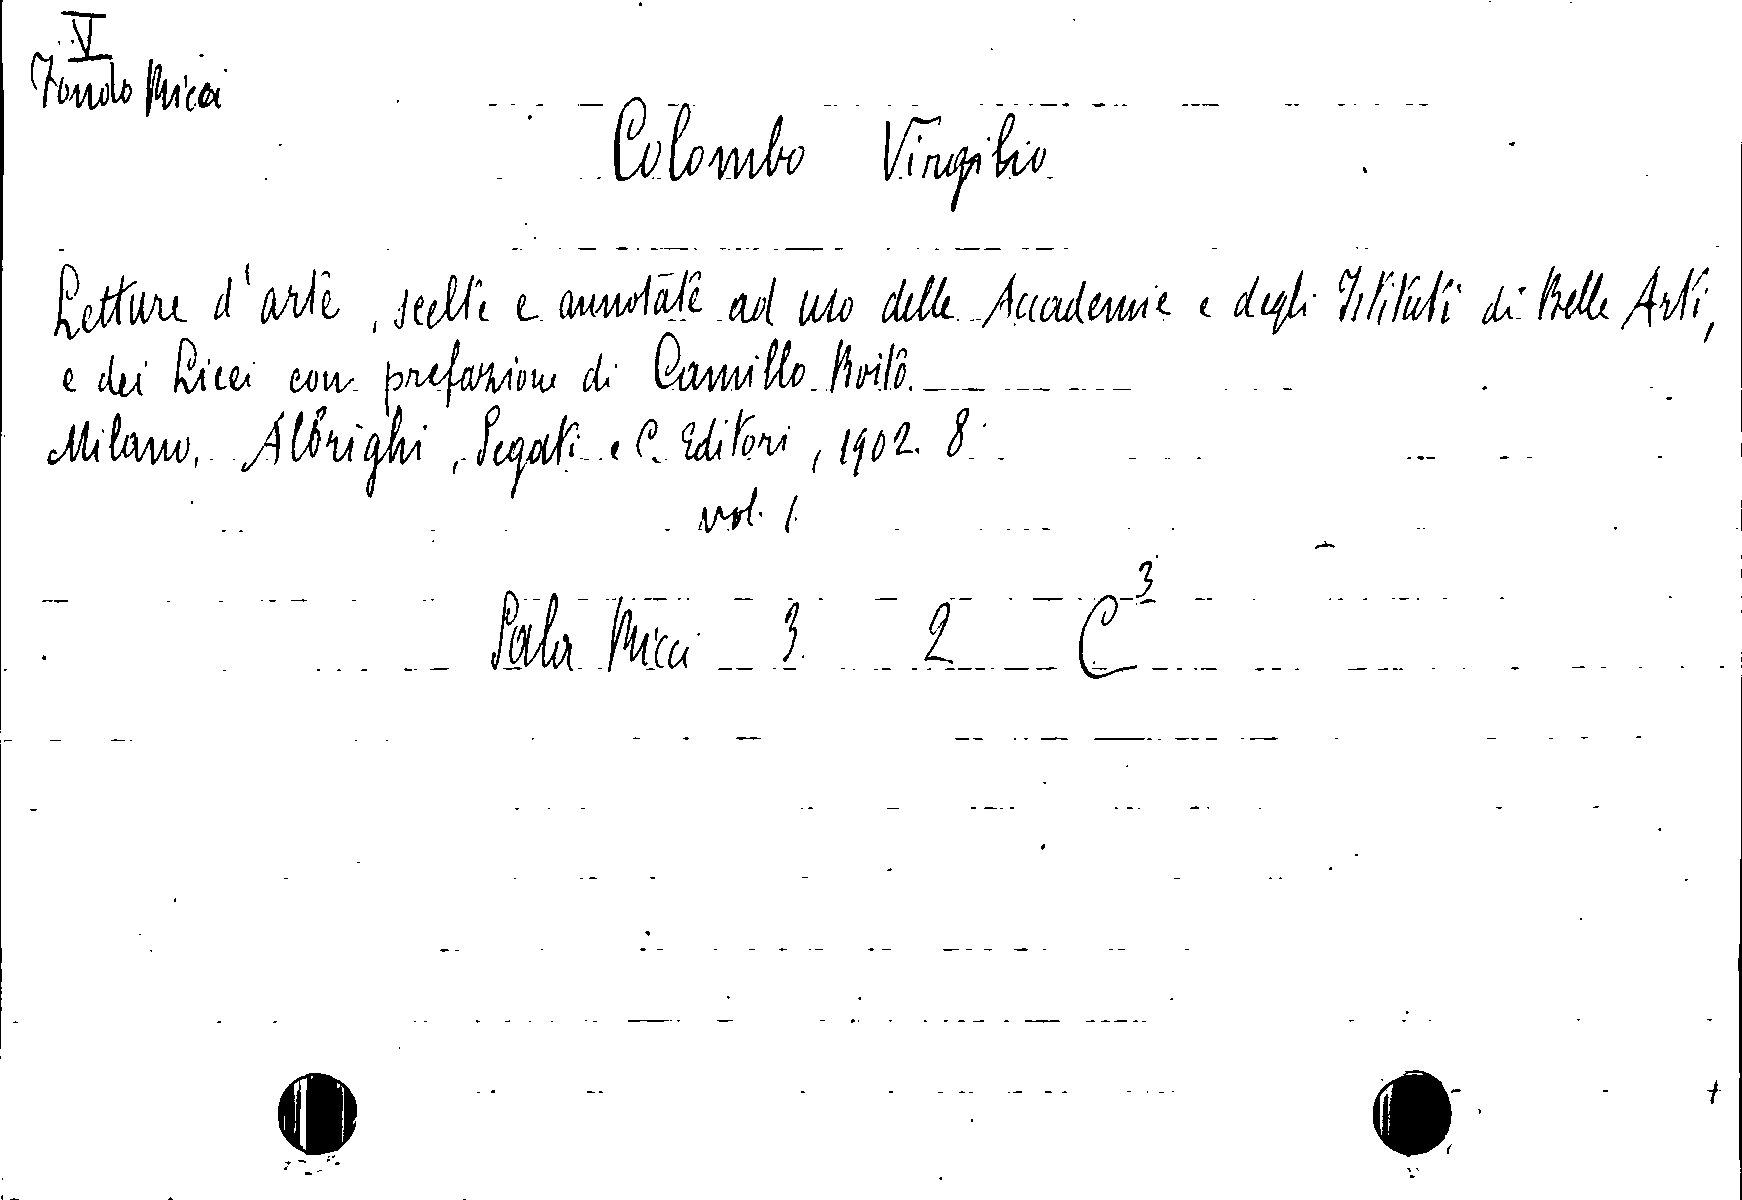 V
Fondo Ricci
Colombo Virgilio
Letture d'arte, scelte e annotate ad uso delle Accademie e degli Istituti di Belle Arti,
e dei Licei con prefazione di Camillo Boito.
Milano, Albrighi, Segati e C. Editori, 1902. 8°
vol. 1.
Sala Ricci 3 2 C³